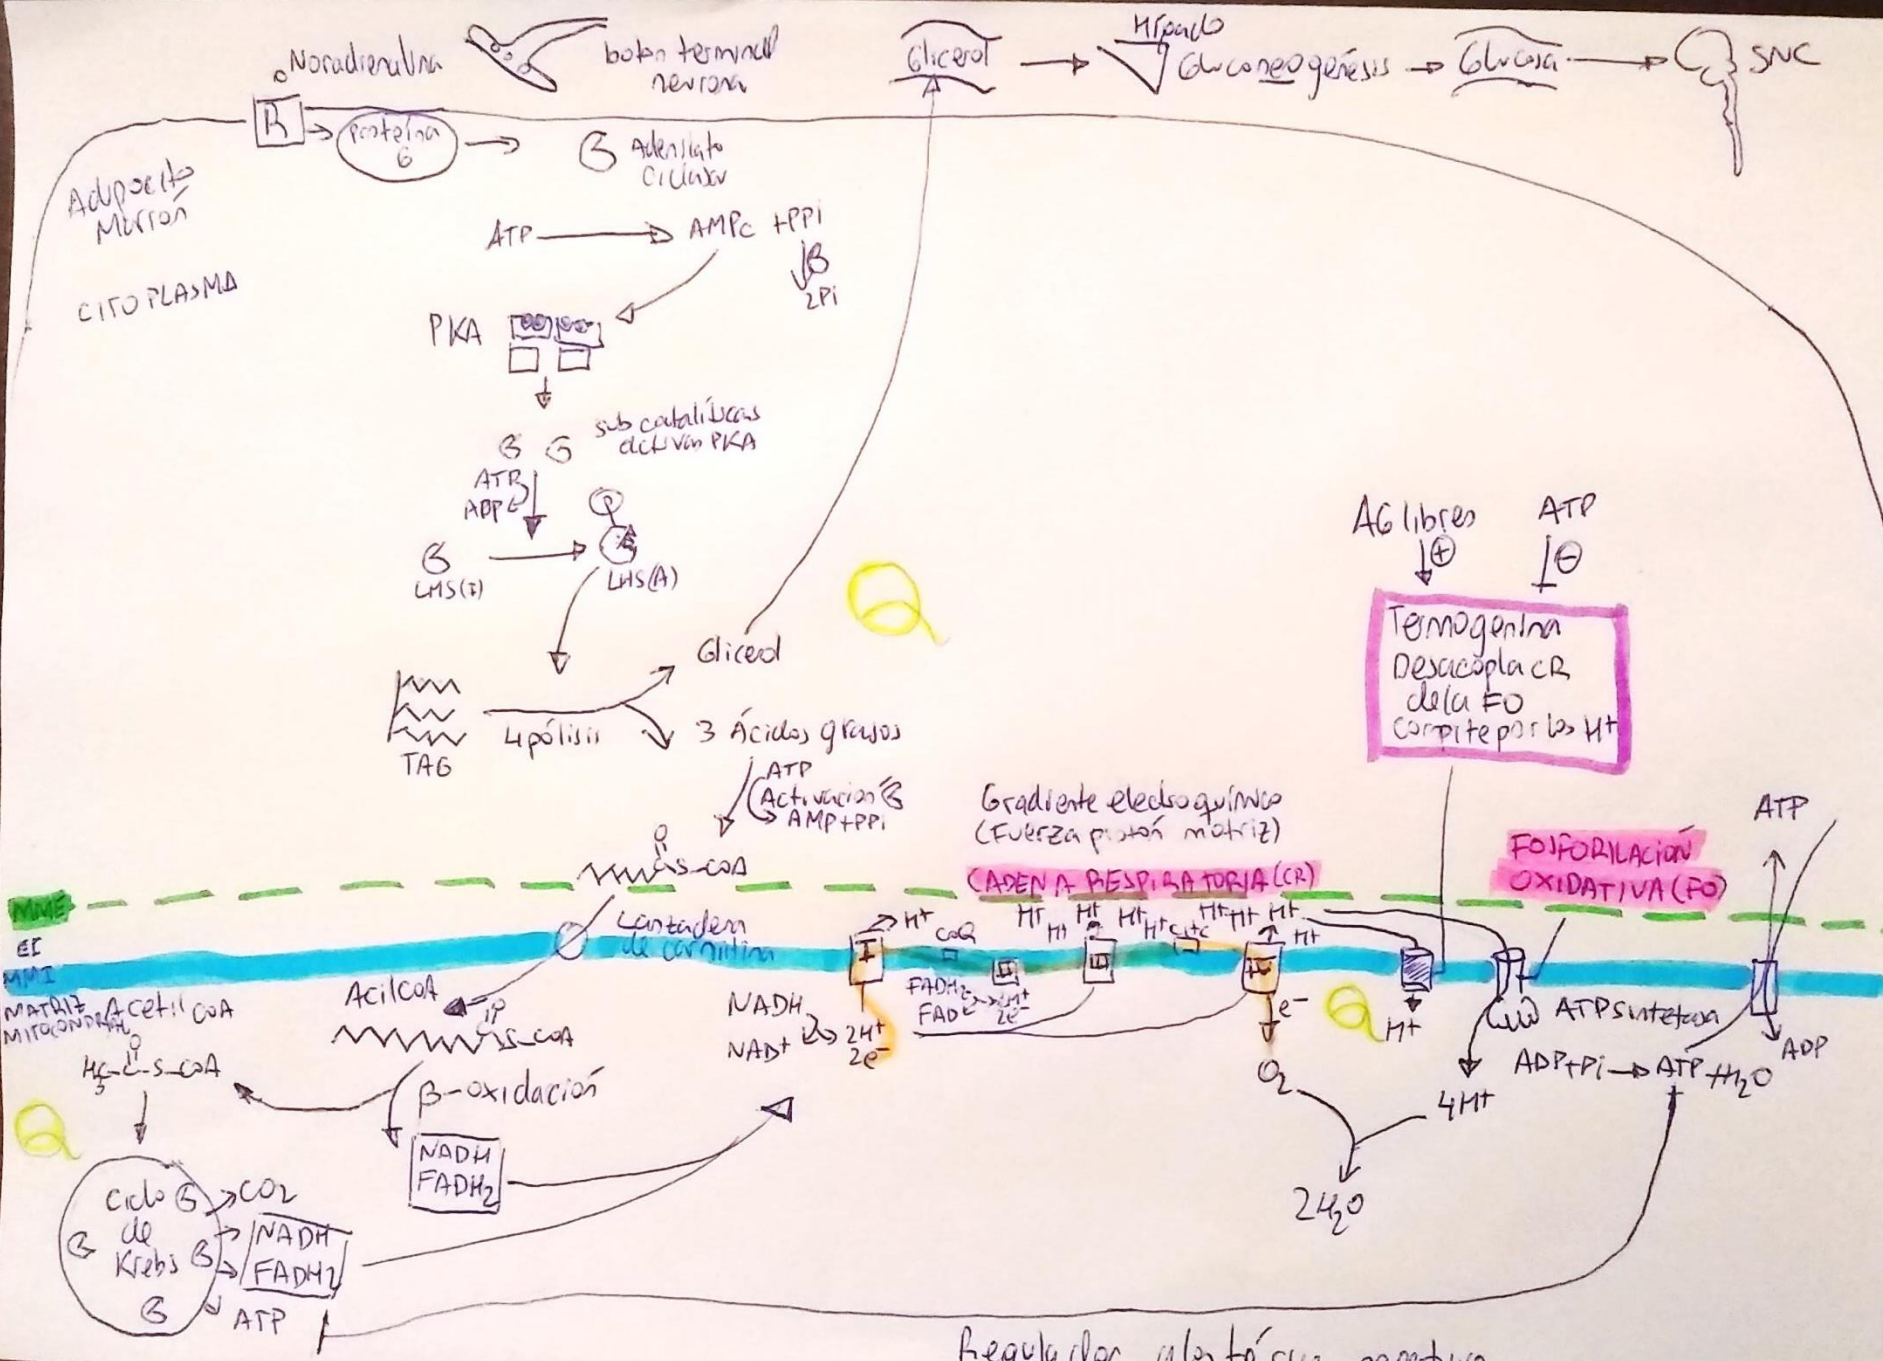 Noradrenalina
botón terminal
neurona
Glicerol
Hígado
Gluconeogénesis
Glucosa
SNC
R
Proteína
G
Adenilato
Ciclasa
Adipocito
Marrón
CITOPLASMA
ATP
AMPc +PPi
2Pi
PKA
sub catalíticas
activas PKA
ATP
ADP
P
LHS(I)
LHS(A)
Glicerol
TAG
Lipólisis
3 Ácidos grasos
ATP
Activación
AMP+PPi
AG libres
ATP
+
-
Termogenina
Desacopla CR
de la FO
compite por los H+
Gradiente electroquímico
(Fuerza protón motriz)
CADENA RESPIRATORIA (CR)
FOSFORILACIÓN
OXIDATIVA (FO)
ATP
O
S-COA
MME
EI
MMI
MATRIZ
MITOCONDRIAL
Lanzadera
de carnitina
H+
CoQ
H+ H+ H+ H+ H+ H+
H+ H+ H+
Cytc
I
II
III
IV
FADH2
FAD
2H+
2e-
NADH
NAD+
2H+
2e-
e-
O2
H+
ATPsintetasa
ADP+Pi → ATP +H2O
ADP
4H+
2H2O
Acetil COA
O
H3C-C-S-COA
AcilCOA
S-COA
β-oxidación
NADH
FADH2
Ciclo
de
Krebs
CO2
NADH
FADH2
ATP
Regulador alostérico negativo